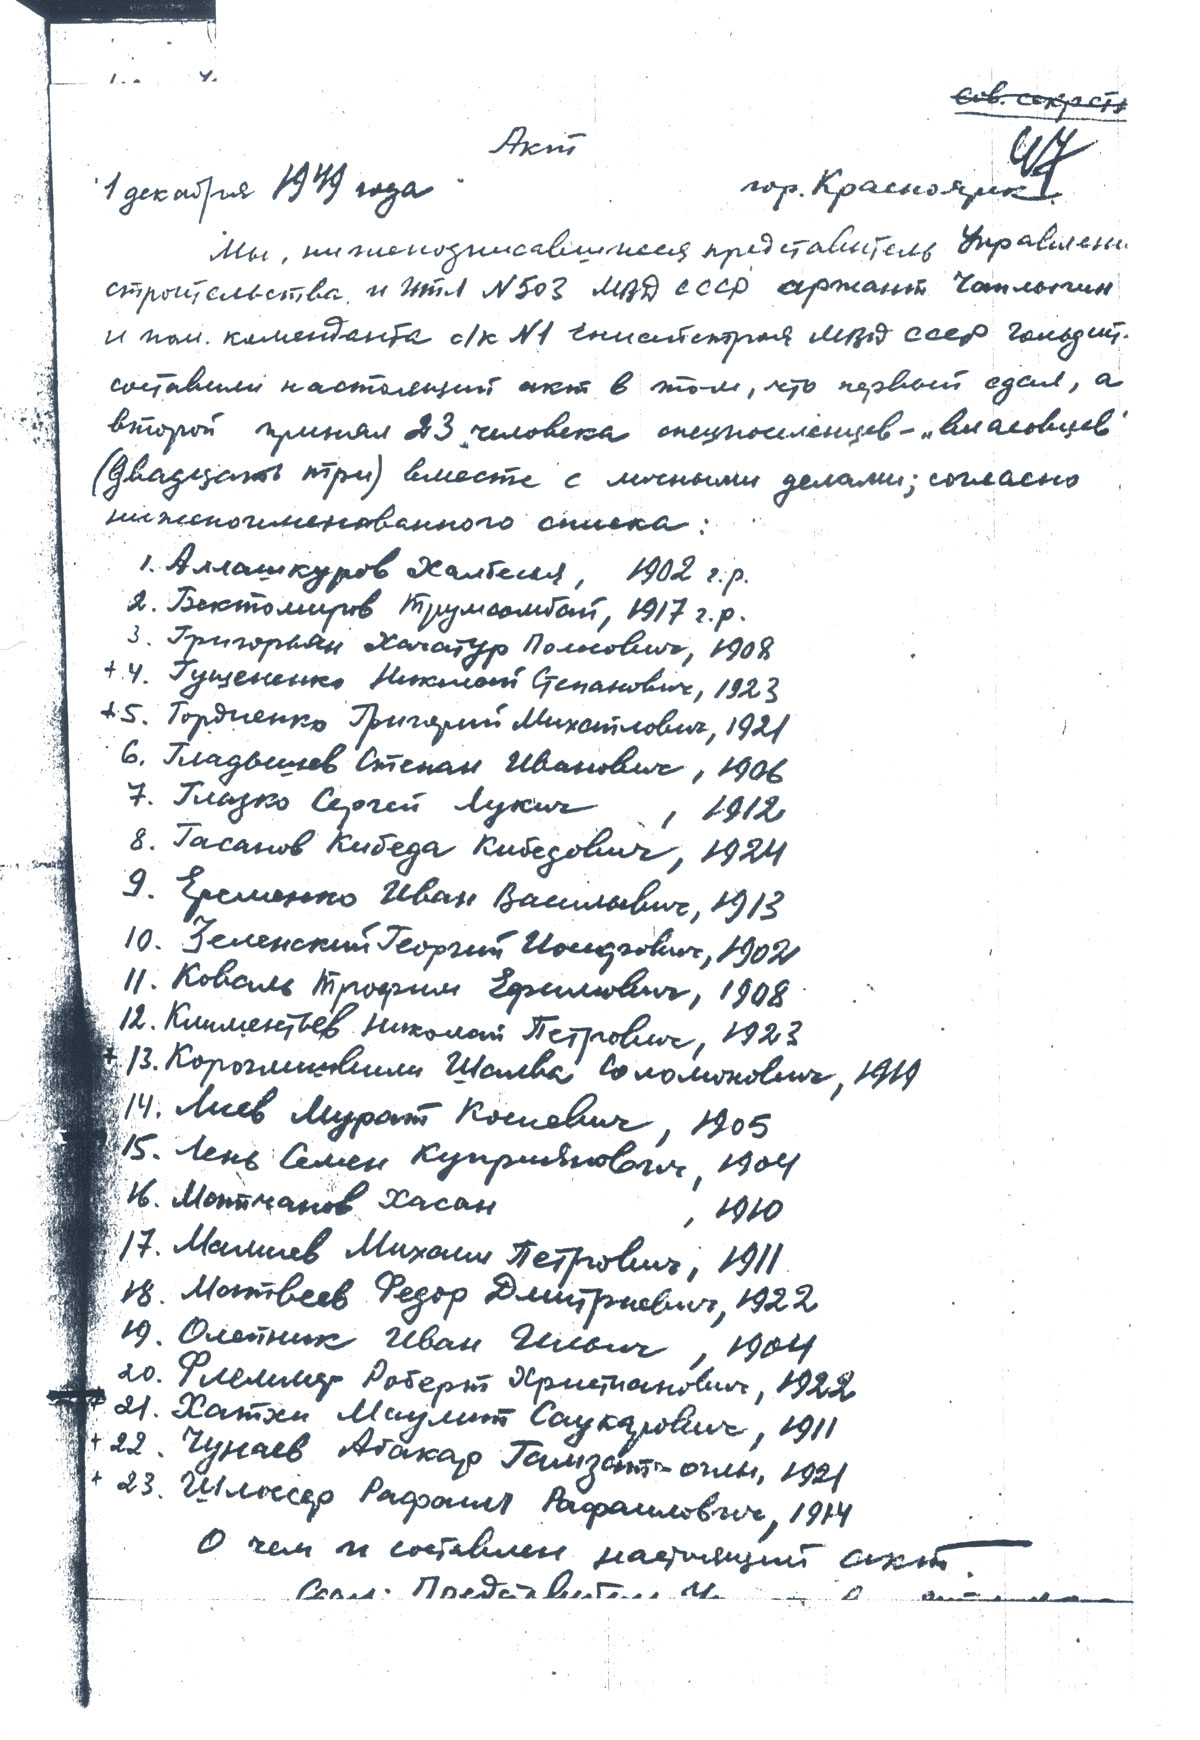 Сов. секретн
Акт
47
1 декабря 1949 года гор. Красноярск.
Мы, нижеподписавшиеся представитель Управлен
строительства и ИТЛ N503 МВД СССР
и пом. коменданта с/к N1 Енисейстроя МВД СССР
составили настоящий акт в том, что первый сдал, а
второй принял 23 человека спецпоселенцев - „власовцев"
(двадцать три) вместе с личными делами; согласно
нижепоименованного списка:
1. Аллашкуров, 1902 г.р.
2. Бектомиров, 1917 г.р.
3. Григорьян Хачатур, 1908
+ 4. Гущененко Николай Степанович, 1923
+ 5. Гордиенко Григорий Михайлович, 1921
6. Гладышев Степан Иванович, 1906
7. Глазко Сергей Лукич, 1912
8. Гасанов Кибеда Кибедович, 1924
9. Еременко Иван Васильевич, 1913
10. Зеленский Георгий, 1902
11. Коваль Трофим Ефимович, 1908
12. Климентьев Николай Петрович, 1923
+ 13. Шалва Соломонович, 1919
14. Лиев Мурат, 1905
15. Лень Семен Куприянович, 1904
16. Хасан, 1910
17. Малышев Михаил Петрович, 1911
18. Матвеев Федор Дмитриевич, 1922
19. Олейник Иван Ильич, 1904
20. Роберт Христианович, 1922
+ 21. Хатхи Маулит, 1911
+ 22. Чунаев Абакар Гамзат-оглы, 1921
+ 23. Шлоссер Рафаил Рафаилович, 1914
О чем и составлен настоящий акт.
Сдал: Представитель